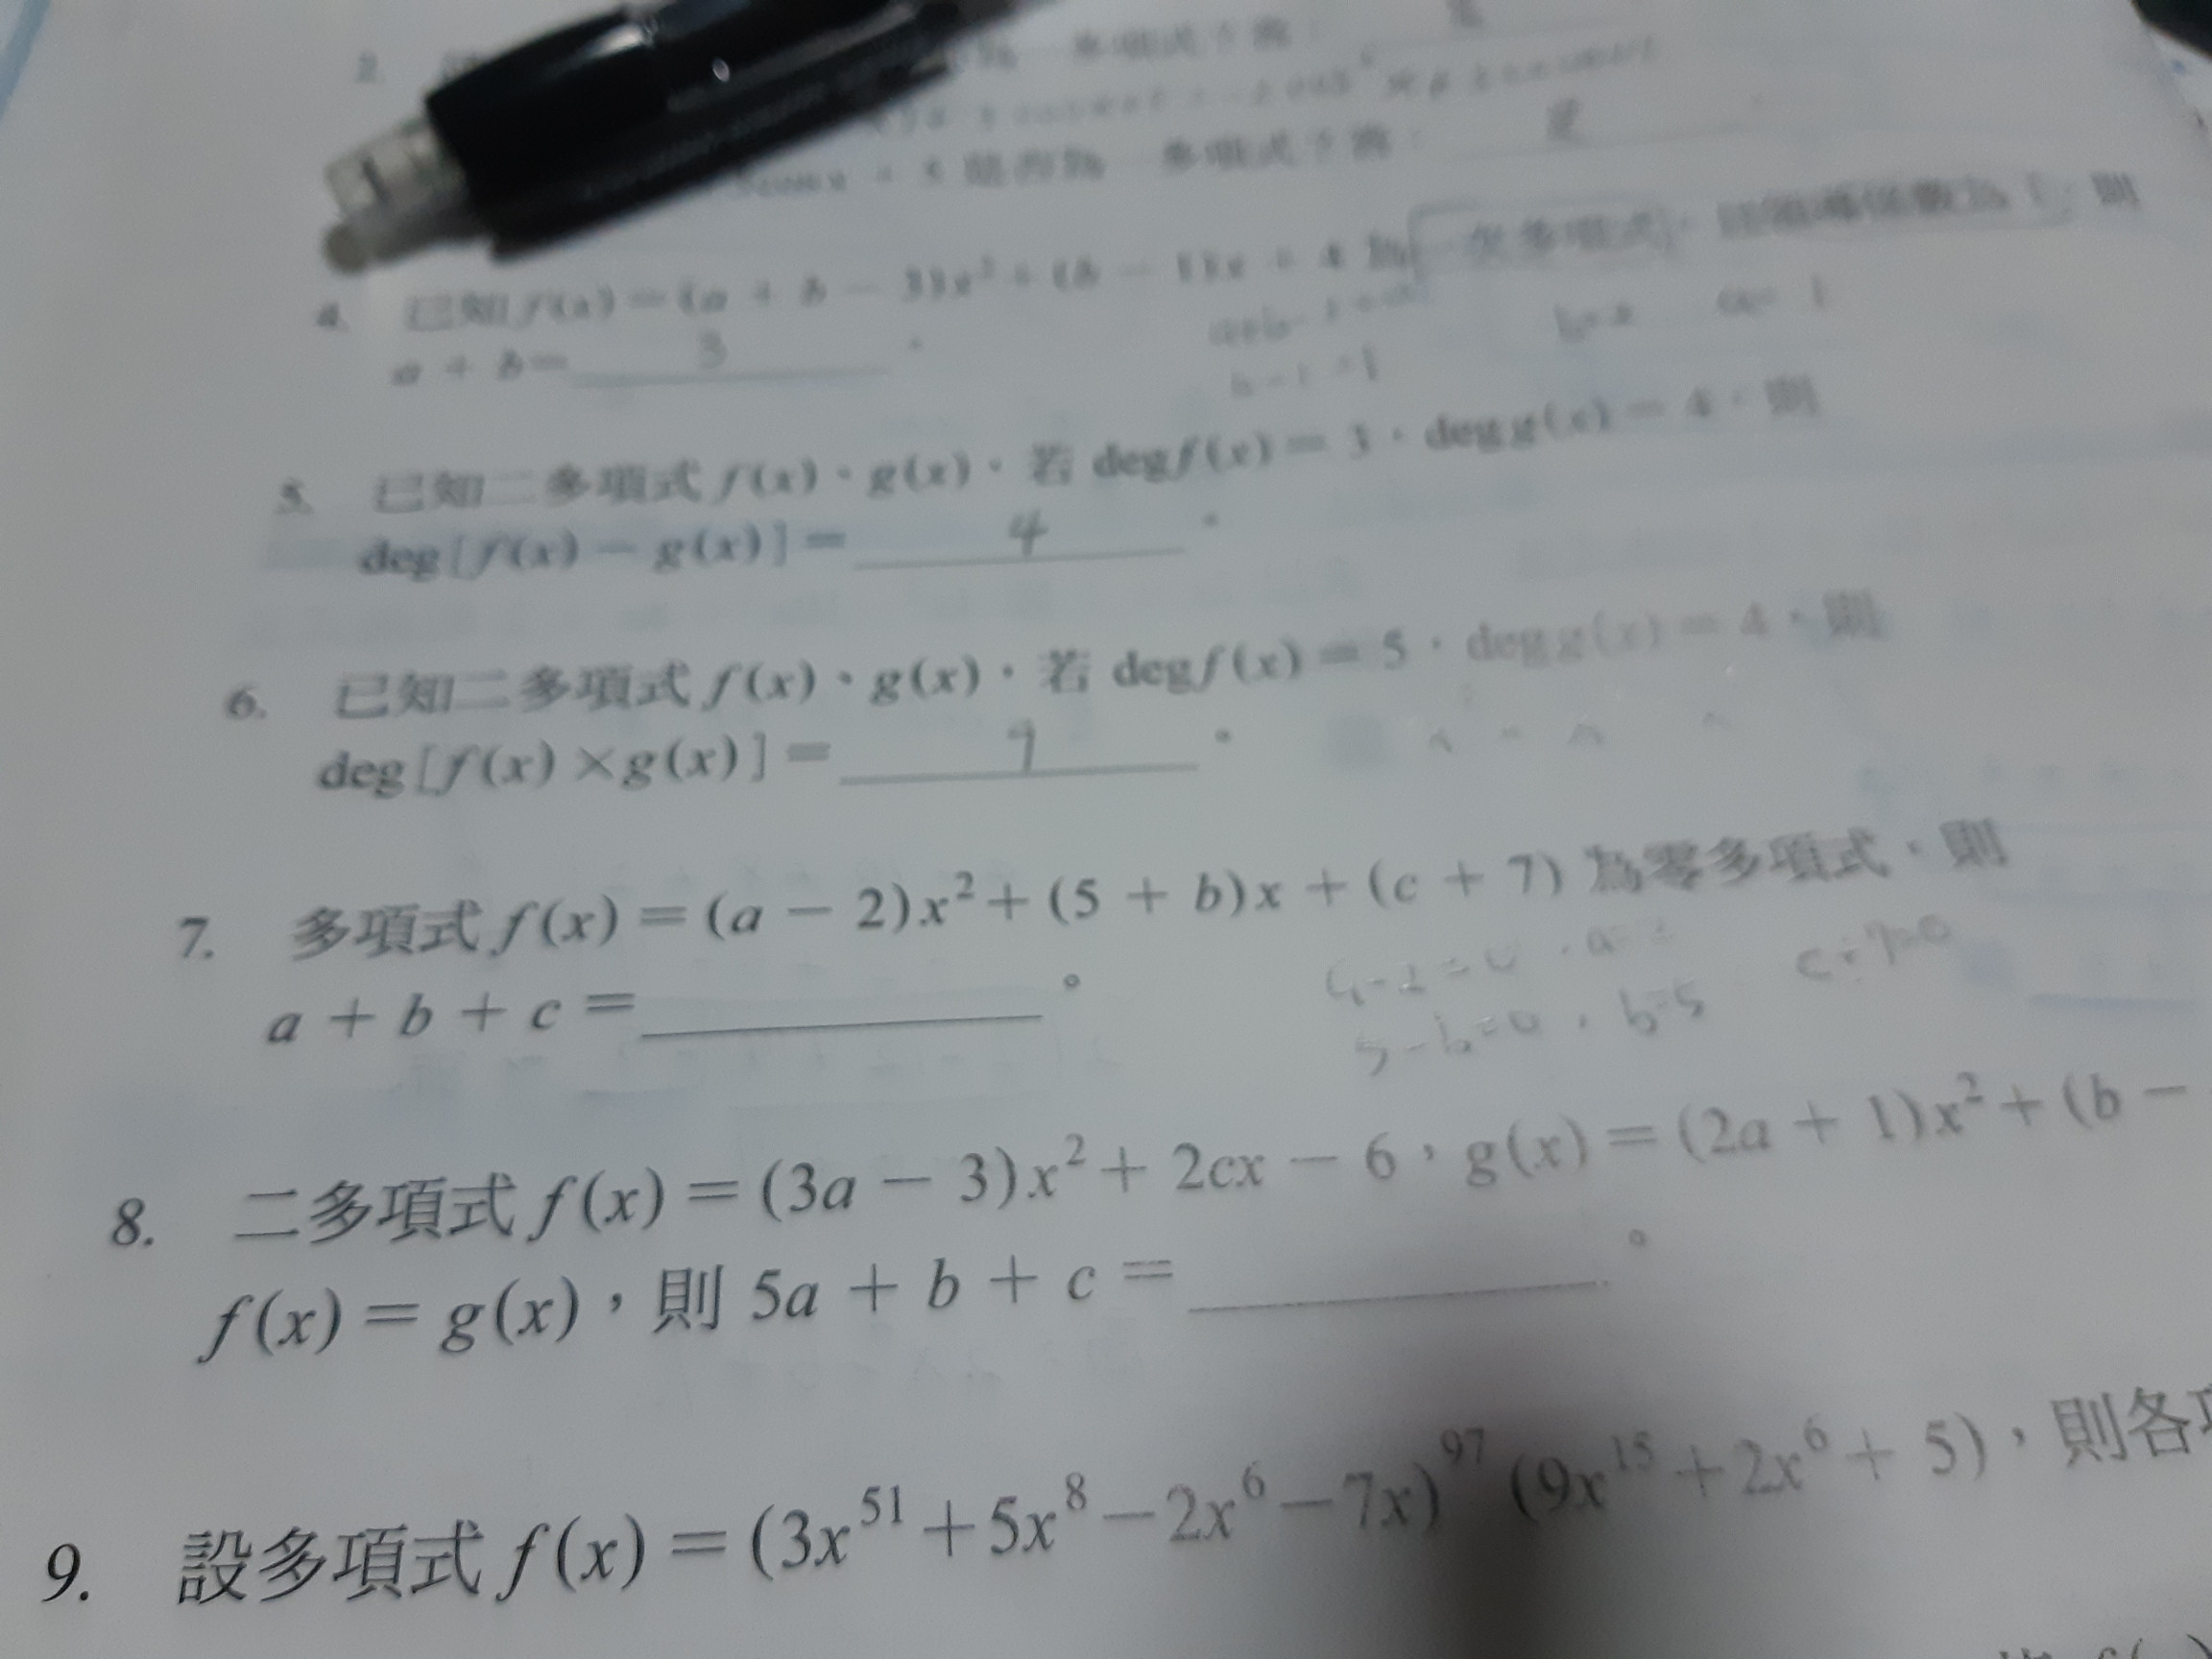 多項式？答：
是否為 多項式？答： 是
4. 已知 f(x) = (a + b − 3)x² + (b − 1)x + 4 為一次多項式，且 則
a + b = 3 。
b − 1 = 1
5. 已知二多項式 f(x)、g(x)，若 deg f(x) = 3，deg g(x) = 4，則
deg[f(x) − g(x)] = 4 。
6. 已知二多項式 f(x)、g(x)，若 deg f(x) = 5，deg g(x) = 4，則
deg[f(x) × g(x)] = 9 。
7. 多項式 f(x) = (a − 2)x² + (5 + b)x + (c + 7) 為零多項式，則
a + b + c = 。
5-b=0, b=5 c+7=0
8. 二多項式 f(x) = (3a − 3)x² + 2cx − 6，g(x) = (2a + 1)x² + (b −
f(x) = g(x)，則 5a + b + c = 。
9. 設多項式 f(x) = (3x⁵¹ + 5x⁸ − 2x⁶ − 7x)⁹⁷ (9x¹⁵ + 2x⁶ + 5)，則各